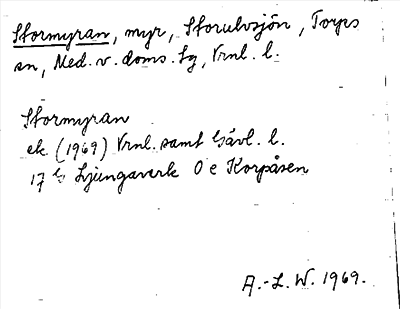 Stormyran, myr, Storulvsjön, Torps
sn, Med. v. doms. tg, Vrnl. l.
Stormyran
ek. (1969) Vrnl. samt Gävl. l.
17 G Ljungaverk 0 e Korpåsen
A.-L. W. 1969.